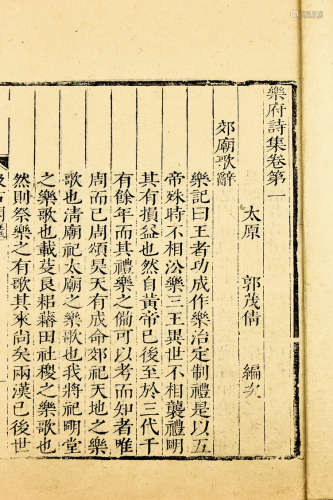 樂府詩集卷第一
太原 郭茂倩 編次
郊廟歌辭
樂記曰王者功成作樂治定制禮是以五
帝殊時不相㳂樂三王異世不相襲禮明
其有損益也然自黃帝已後至於三代千
有餘年而其禮樂之備可以考而知者唯
周而已周頌昊天有成命郊祀天地之樂
歌也淸廟祀太廟之樂歌也我將祀明堂
之樂歌也載芟良耜藉田社稷之樂歌也
然則祭樂之有歌其來尚矣兩漢已後世